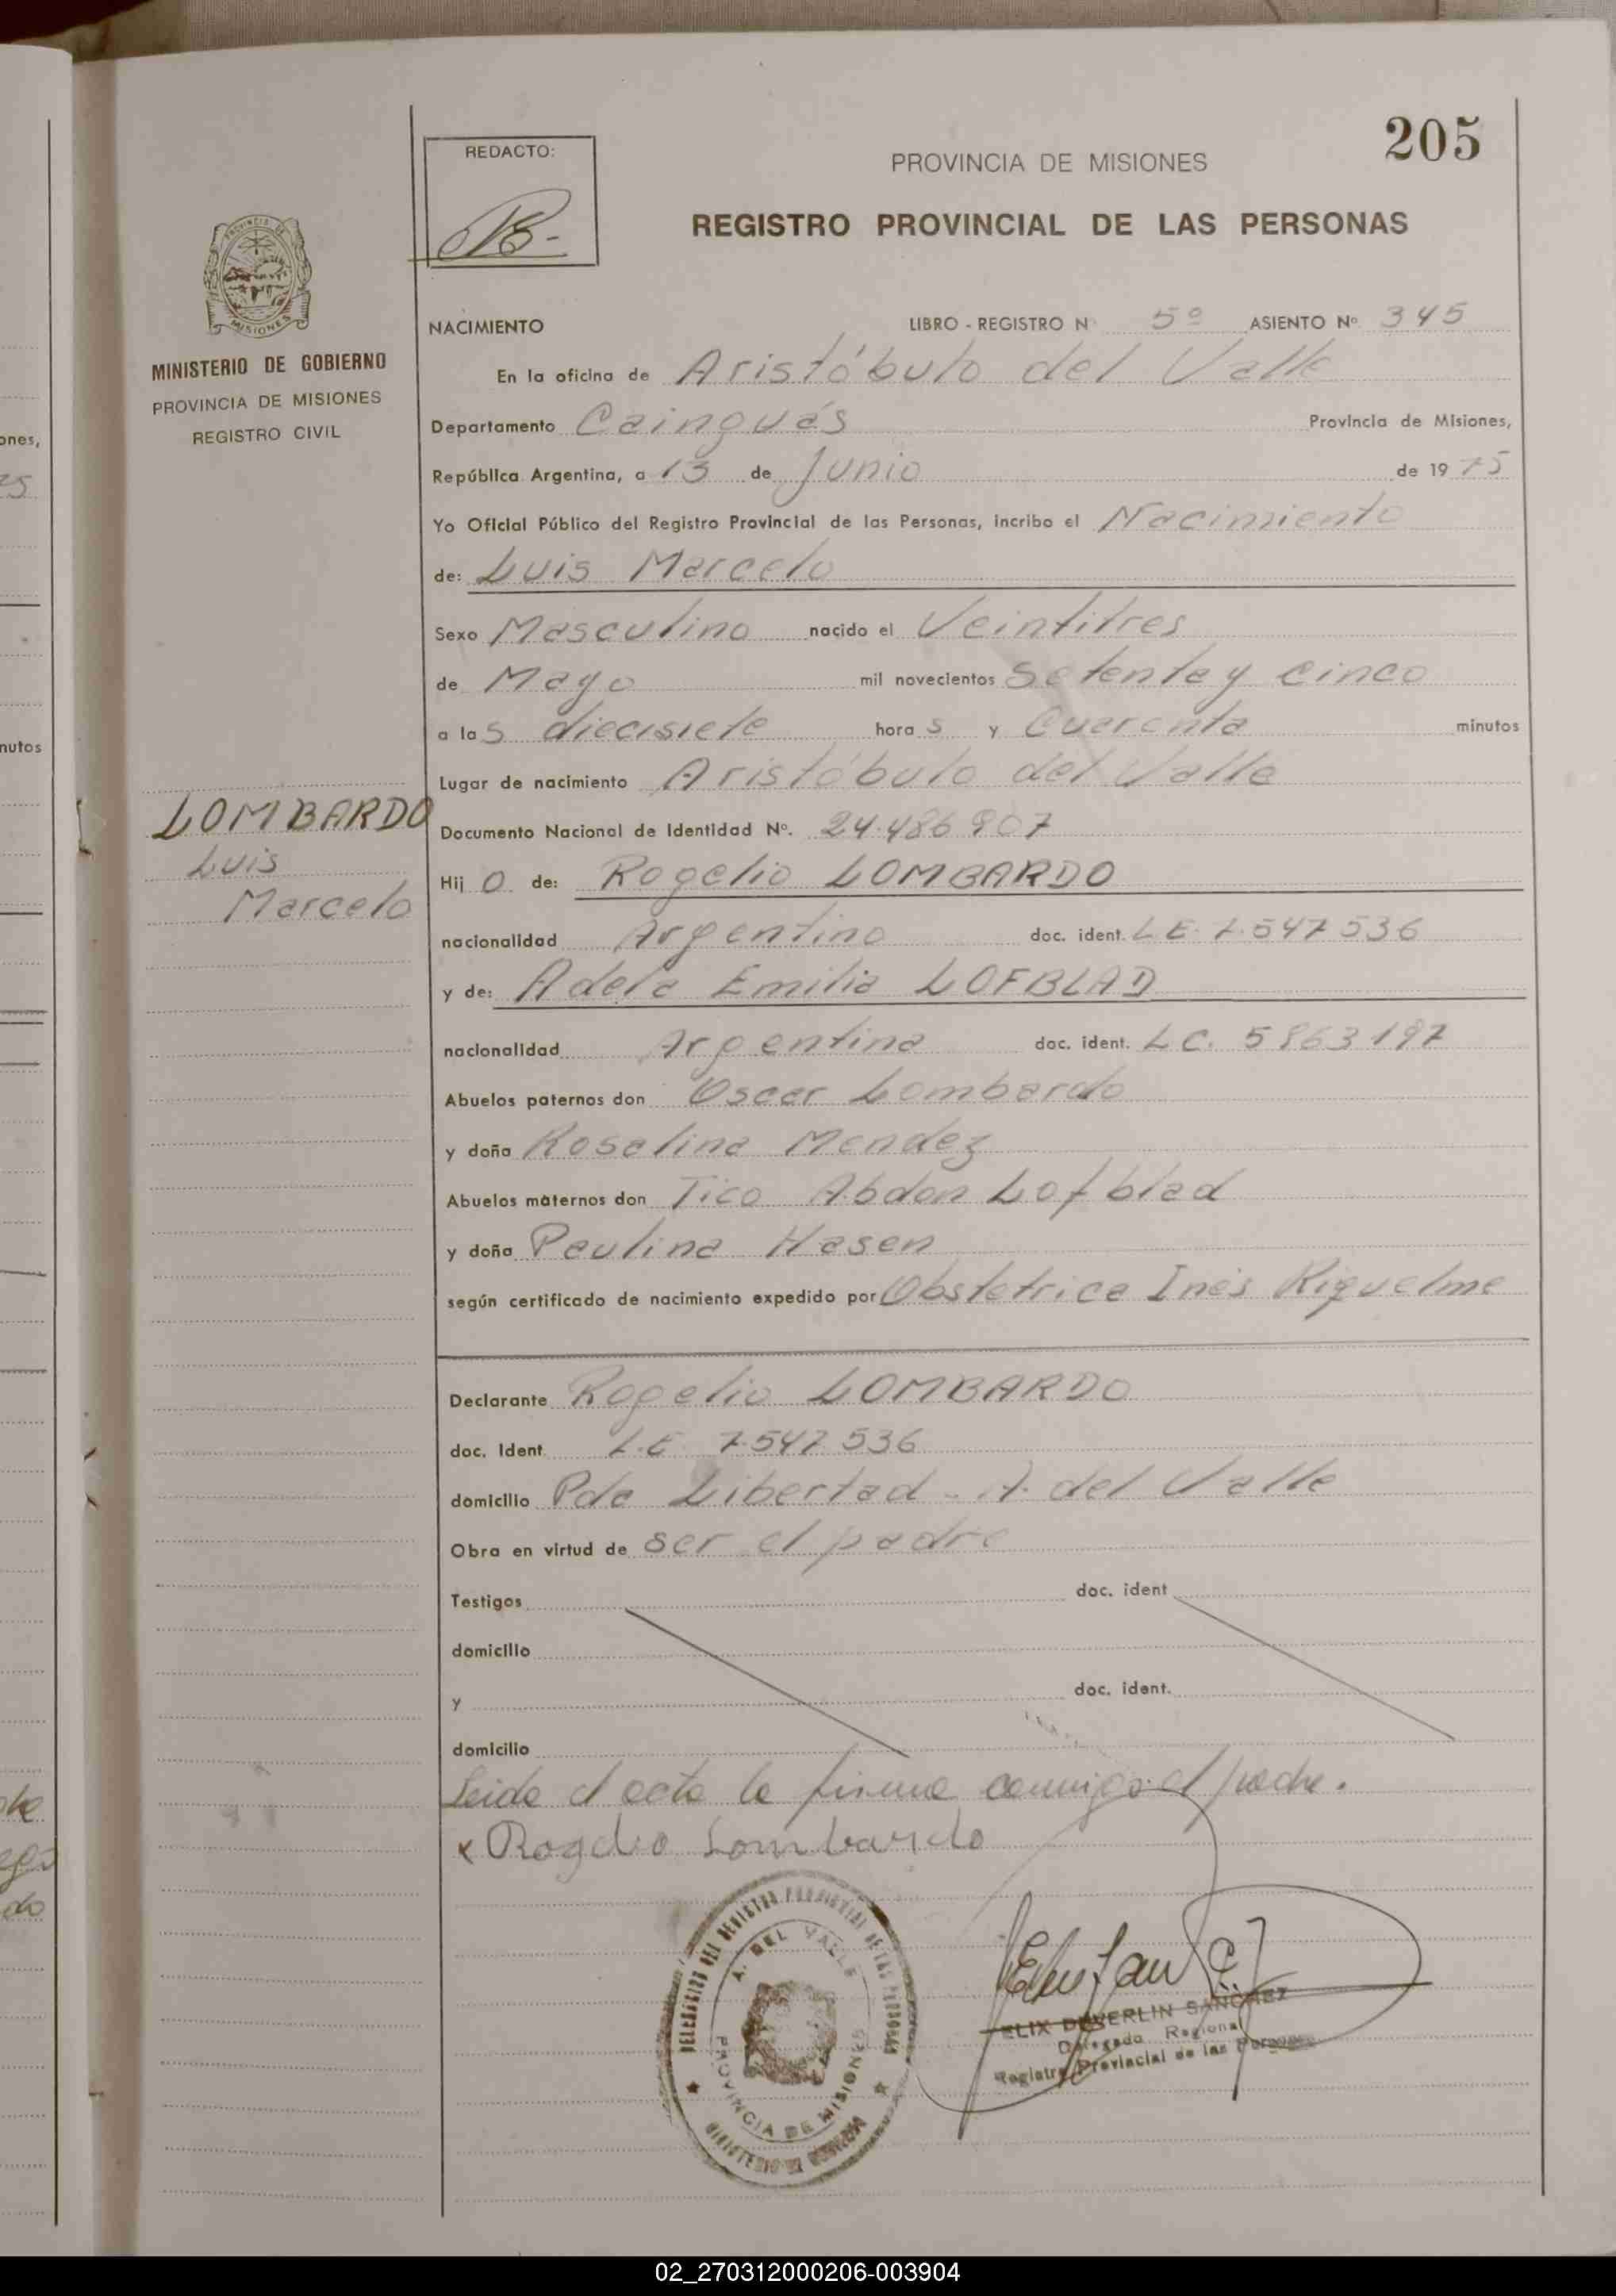 205
REDACTO:
PROVINCIA DE MISIONES
REGISTRO PROVINCIAL DE LAS PERSONAS
PROVINCIA DE
MISIONES
MINISTERIO DE GOBIERNO
PROVINCIA DE MISIONES
REGISTRO CIVIL
NACIMIENTO LIBRO - REGISTRO N 5º ASIENTO Nº 345
En la oficina de Aristóbulo del Valle
Departamento Cainguás Provincia de Misiones,
República Argentina, a 13 de Junio de 1975
Yo Oficial Público del Registro Provincial de las Personas, incribo el Nacimiento
de: Luis Marcelo
Sexo Masculino nacido el Veintitres
de Mayo mil novecientos Setenta y cinco
a las diecisiete horas y Cuarenta minutos
Lugar de nacimiento Aristóbulo del Valle
LOMBARDO
Luis
Marcelo
Documento Nacional de Identidad Nº. 24.486.907
Hijo de: Rogelio LOMBARDO
nacionalidad Argentino doc. ident. L.E. 7.547.536
y de: Adela Emilia LOFBLAD
nacionalidad Argentina doc. ident. L.C. 5863197
Abuelos paternos don Oscar Lombardo
y doña Rosalina Mendez
Abuelos maternos don Tico Abdon Lofblad
y doña Paulina Hasen
según certificado de nacimiento expedido por Obstetrica Inés Riquelme
Declarante Rogelio LOMBARDO
doc. Ident. L.E. 7.547.536
domicilio Pdo Libertad - A. del Valle
Obra en virtud de ser el padre
Testigos doc. ident
domicilio
y doc. ident.
domicilio
Leida el acta la firma conmigo el padre.
x Rogelio Lombardo
DELEGACION DEL REGISTRO PROVINCIAL DE LAS PERSONAS
A. DEL VALLE
PROVINCIA DE MISIONES
MINISTERIO DE GOBIERNO
ELIX DEVERLIN SANCHEZ
Delegado Regional
Registro Provincial de las Personas
02_270312000206-003904